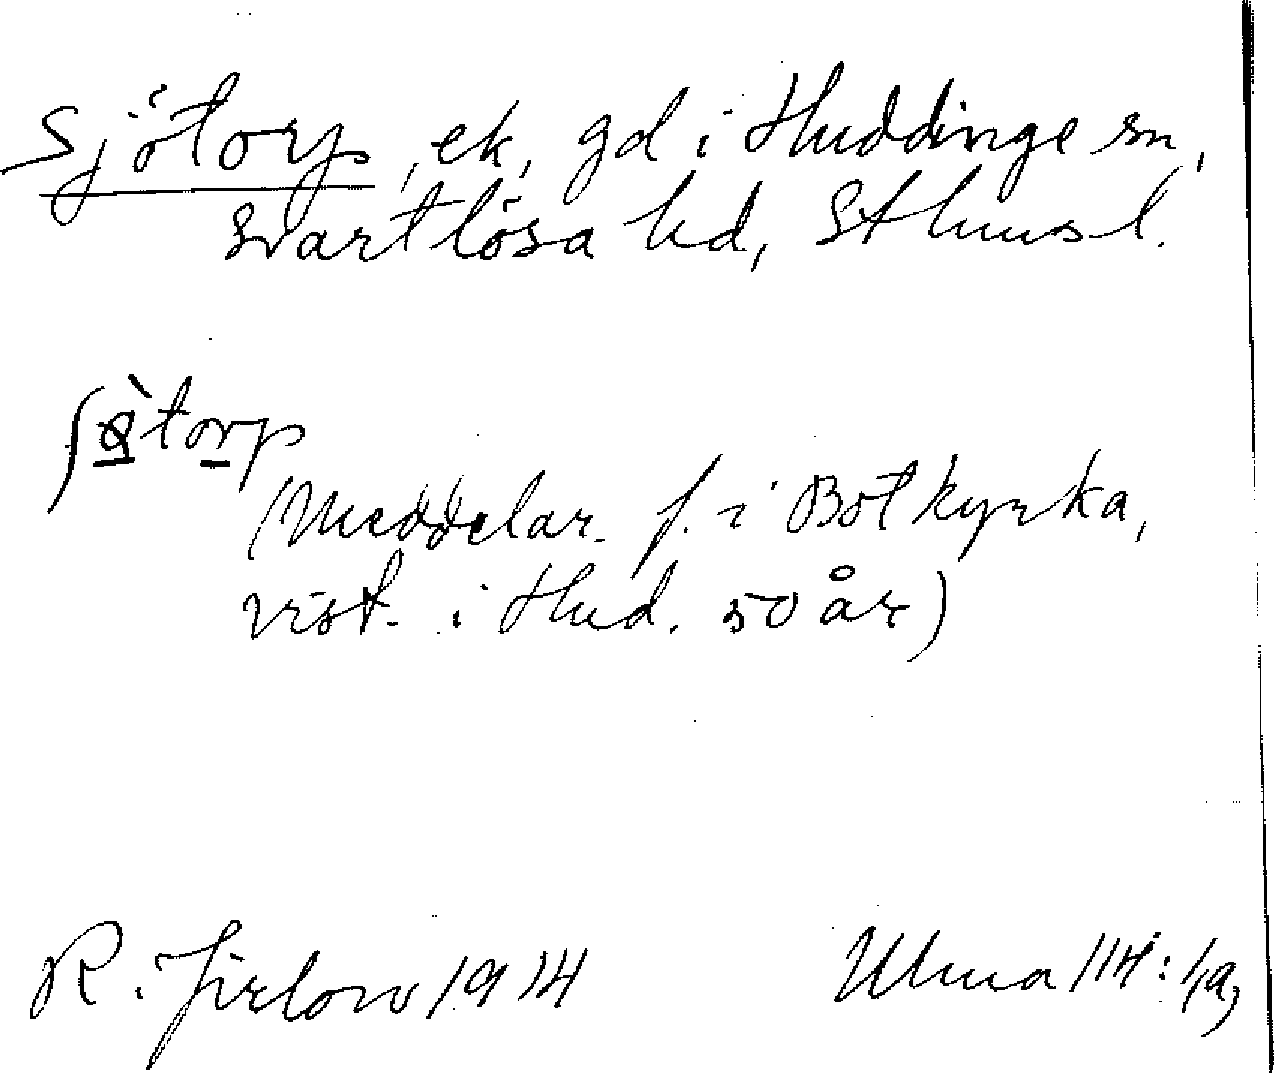 Sjötorp, ek, gd i Huddinge sn,
Svartlösa hd, Sthms l.
torp
(Meddelar. f. i Botkyrka,
vist. i Hud. 50 år)
R. Jirlow 1914 Uluna 114: